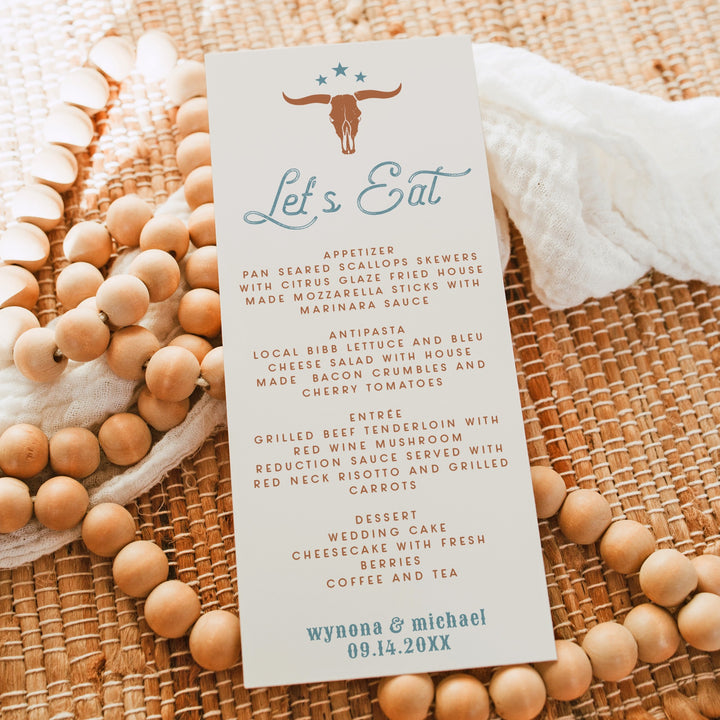 Let's Eat
APPETIZER
PAN SEARED SCALLOPS SKEWERS
WITH CITRUS GLAZE FRIED HOUSE
MADE MOZZARELLA STICKS WITH
MARINARA SAUCE
ANTIPASTA
LOCAL BIBB LETTUCE AND BLEU
CHEESE SALAD WITH HOUSE
MADE BACON CRUMBLES AND
CHERRY TOMATOES
ENTRÉE
GRILLED BEEF TENDERLOIN WITH
RED WINE MUSHROOM
REDUCTION SAUCE SERVED WITH
RED NECK RISOTTO AND GRILLED
CARROTS
DESSERT
WEDDING CAKE
CHEESECAKE WITH FRESH
BERRIES
COFFEE AND TEA
wynona & michael
09.14.20XX